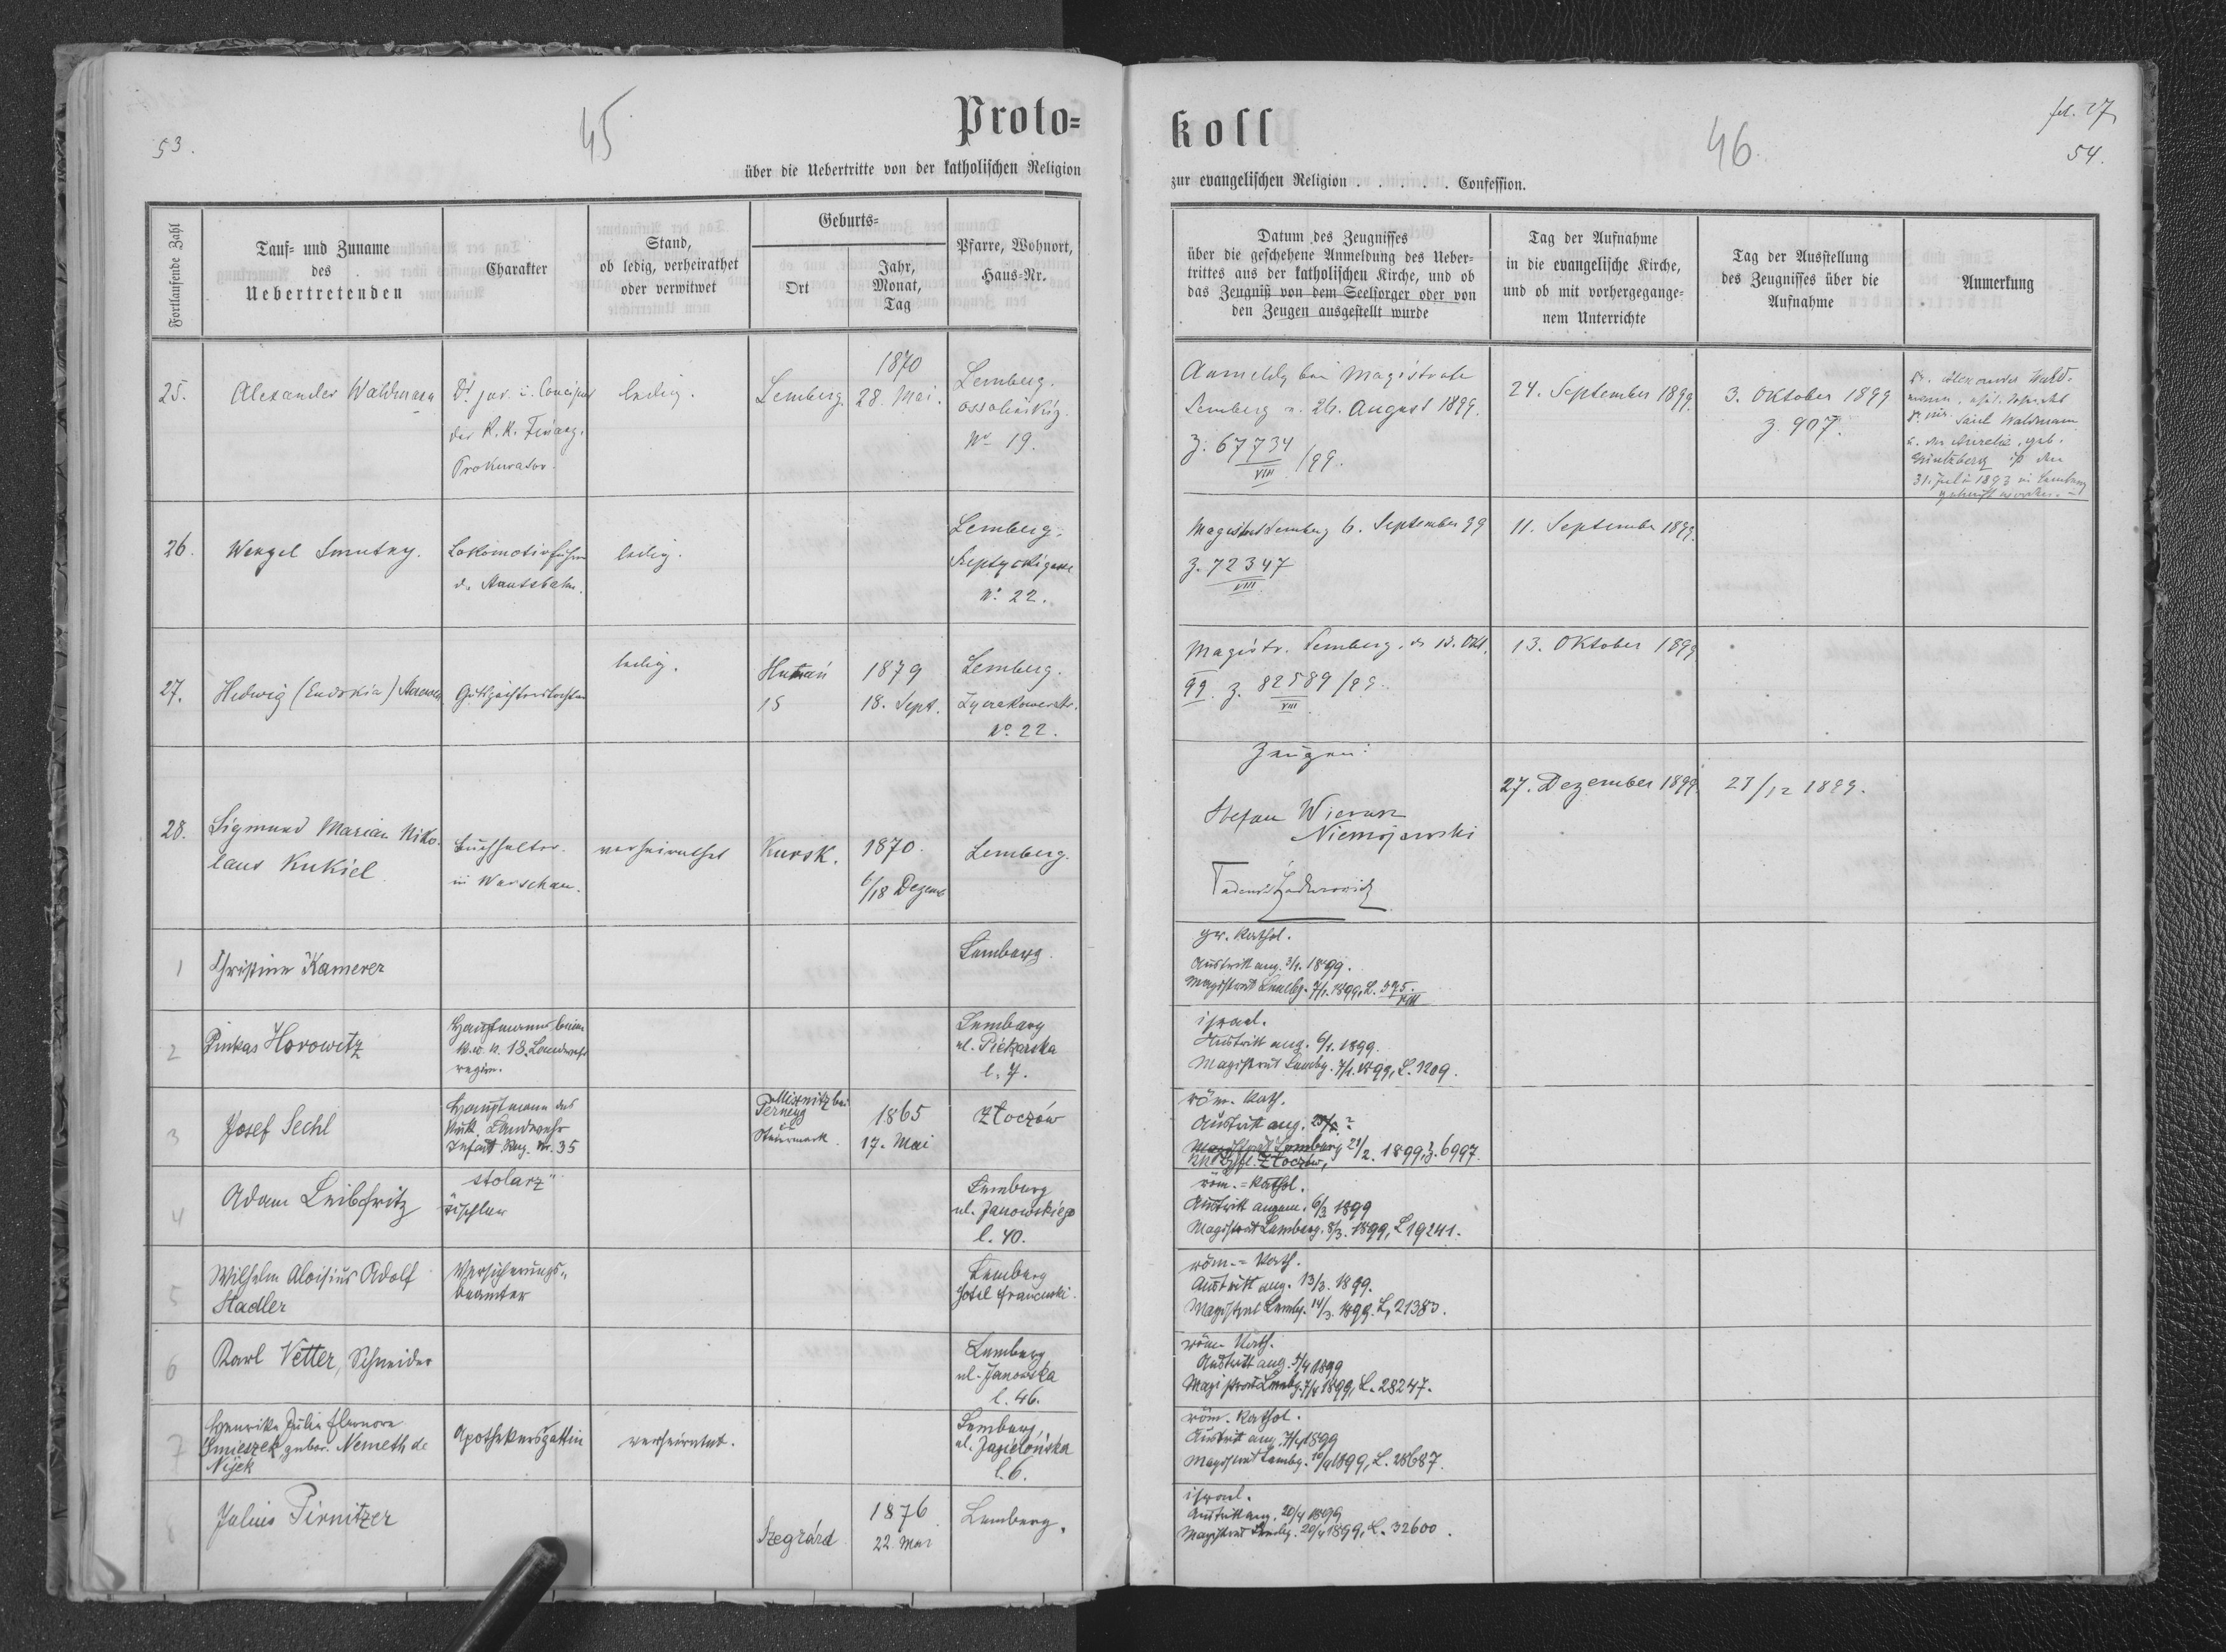 53.
45
Proto=
über die Uebertritte von der katholischen Religion
Fortlaufende Zahl
Tauf- und Zuname
des
Uebertretenden
Charakter
Stand,
ob ledig, verheirathet
oder verwitwet
Geburts=
Ort
Jahr,
Monat,
Tag
Pfarre, Wohnort,
Haus-Nr.
25.
Alexander Waldmann
Dr jur. u. Concipist
der K. K. Finanz.
Prokurator.
ledig.
Lemberg.
1870
28. Mai.
Lemberg.
No 19.
26.
Wenzel Smutny.
Lokomotivführer
d. Staatsbahn.
ledig.
Lemberg,
No 22.
27.
Hedwig (Eudoxia)
ledig.
15
1879
18. Sept.
Lemberg.
No 22.
28.
Sigmund Marian Niko-
laus Kukiel
Buchhalter.
in Warschau.
verheirathet
Kursk.
1870.
6/18 Dezemb
Lemberg.
1
Christine Kamerer
Lemberg.
2
Pinkas Horowitz
18. Landwehr
regim.
Lemberg
ul. Piekarska
l. 7.
3
Josef Sechl
Hauptmann des
Landwehr
Infant. Reg. Nr. 35
Mixnitz bei
Pernegg
Steiermark
1865
17. Mai
Złoczów
4
Adam Leibfritz
"stolarz"
Tischler
Lemberg
ul. Janowskiego
l. 40.
5
Wilhelm Aloisius Adolf
Stadler
Versicherungs-
beamter
Lemberg
Hotel francuski.
6
Karl Vetter, Schneider
Lemberg
ul. Janowska
l. 46.
7
Henrike Julie Eleonore
Smieszek, gebor. Nemeth de
Nijek
Apothekersgattin
verheiratet.
Lemberg,
ul. Jagielońska
l. 6.
8
Julius Pirnitzer
Szegzárd
1876
22. Mai
Lemberg.
koll
46.
fol. 27
54.
zur evangelischen Religion . . . . . . Confession.
Datum des Zeugnisses
über die geschehene Anmeldung des Ueber-
trittes aus der katholischen Kirche, und ob
das Zeugniß von dem Seelsorger oder von
den Zeugen ausgestellt wurde
Tag der Aufnahme
in die evangelische Kirche,
und ob mit vorhergegange-
nem Unterrichte
Tag der Ausstellung
des Zeugnisses über die
Aufnahme
Anmerkung
Anmeldg beim Magistrate
Lemberg v. 26. August 1899.
Z. 67734/VIII /99.
24. September 1899.
3. Oktober 1899
Z. 907.
Dr. Alexander Wald-
mann,
Saul Waldmann
u. der Aurelie, geb.
ist den
31. Juli 1893 in Lemberg
getauft worden.
Magistrat Lemberg 6. September 99
Z. 72347
VIII
11. September 1899.
Magistr. Lemberg, d. 12. Okt.
99. Z. 82589/99.
VIII
13. Oktober 1899
Zeugen:
Stefan Wierusz
Niemojewski
27. Dezember 1899.
27/12 1899.
gr. kathol.
Austritt ang. 3/1. 1899.
Magistrat Lembg. 7/1. 1899, L. 595.
VIII
israel.
Austritt ang. 6/1. 1899.
Magistrat Lembg. 7/1. 1899, L. 1209.
röm. Kath.
Austritt ang.
Magistrat Lemberg 21/2. 1899, Z. 6997.
Złoczów,
röm.=kathol.
Austritt angem. 6/3 1899
Magistrat Lemberg. 8/3. 1899, L 19241.
röm.=Kath.
Austritt ang. 13/3. 1899.
Magistrat Lembg. 14/3. 1899. L, 21383.
röm. Kath.
Austritt ang. 5/4 1899
Magistrat Lembg. 7/4 1899, L. 28247.
röm. Kathol.
Austritt ang. 7/4 1899
Magistrat Lembg. 10/4 1899, L. 28687.
israel.
Austritt ang. 20/4 1899
Magistrat Lembg. 20/4 1899, L. 32600.